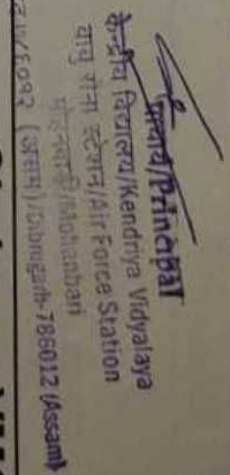 प्राचार्य/Principal
केन्द्रीय विद्यालय/Kendriya Vidyalaya
वायु सेना स्टेशन/Air Force Station
मोहनबारी/Mohanbari
(असम)/Dibrugarh-786012 (Assam)